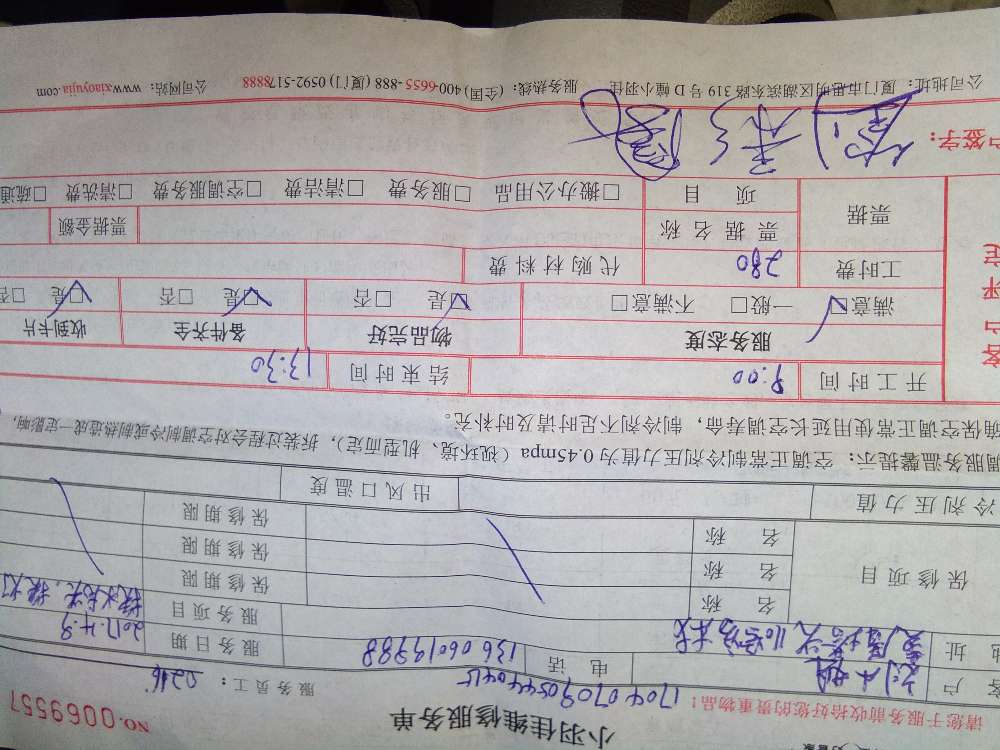 小羽佳维修服务单
NO.0069557
请您于服务前收拾好您的贵重物品！
服务员工：0216
客 户
电 话 13606019988
服务日期 2017.4.9
地 址
服务项目
保修项目
名 称 保修期限
名 称 保修期限
名 称 保修期限
冷剂压力值 出风口温度
调服务温馨提示：空调正常制冷剂压力值为0.45mpa（视环境、机型而定），拆装过程会对空调制冷或制热造成一定影响，
确保空调正常使用延长空调寿命，制冷剂不足时请及时补充。
开工时间 9:00 结束时间 13:30
客户评定
服务态度 物品完好 备件齐全 收到卡片
满意☑ 一般□ 不满意□ ☑是 □否 ☑是 □否 ☑是 □否
工时费 280 代购材料费
票据 票据名称 票据金额
项 目 □搬办公用品 □服务费 □清洁费 □空调服务费 □清洗费 □疏通
户签字：
公司地址：厦门市思明区湖滨东路319号D幢小羽佳 服务热线：(全国)400-6655-888 (厦门)0592-5178888 公司网站：www.xiaoyujia.com